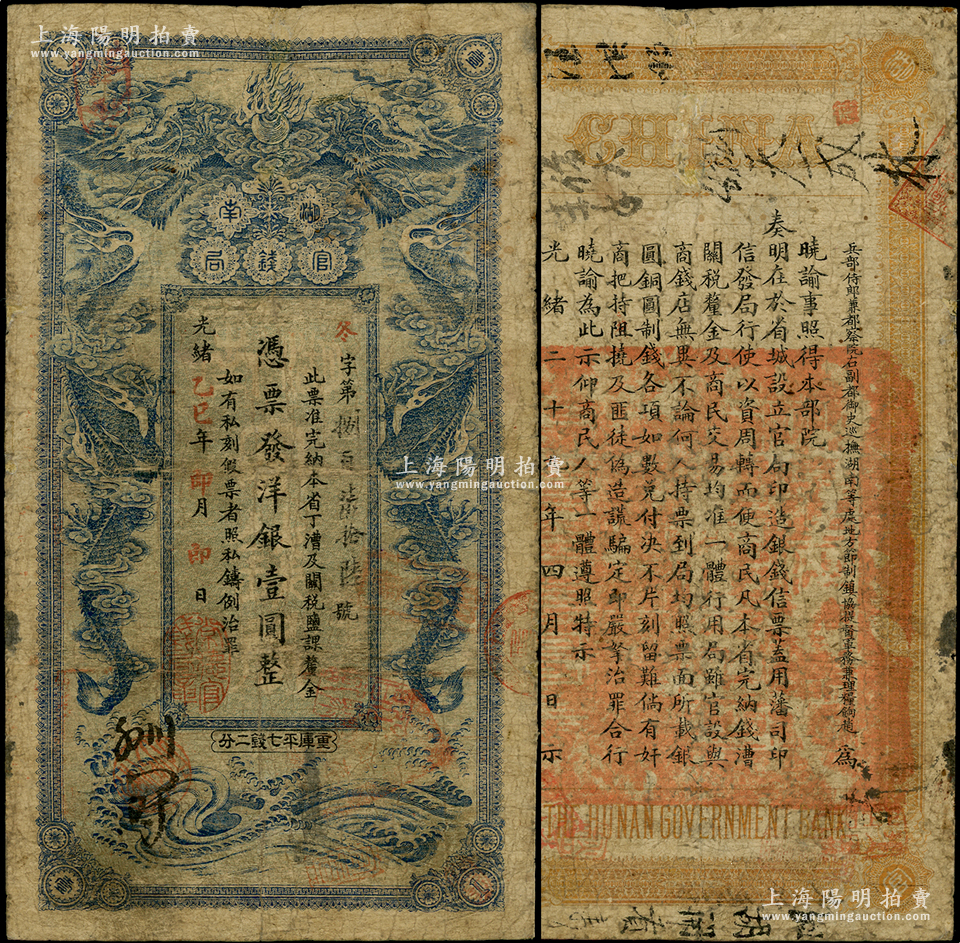 上海陽明拍賣
www.yangmingauction.com
壹
湖南
官錢局
冬字第捌百柒拾陸號
此票准完納本省丁漕及關稅鹽課釐金
憑票發洋銀壹圓整
如有私刻假票者照私鑄例治罪
光緒乙巳年印月印日
重庫平七錢二分
壹
1
兵部侍郎兼都察院右副都御史巡撫湖南等處地方兼節制鎮協提督軍務兼理糧餉趙 為
曉諭事照得本部院
奏明在於省城設立官局印造銀錢信票蓋用藩司印
信發局行使以資周轉而便商民凡本省完納錢漕
關稅釐金及商民交易均准一體行用局雖官設與
商錢店無異不論何人持票到局均照票面所載銀
圓銅圓制錢各項如數兌付決不片刻留難倘有奸
商把持阻撓及匪徒偽造謊騙定即嚴拏治罪合行
曉諭為此示仰商民人等一體遵照特示
光緒二十九年四月 日示
THE HUNAN GOVERNMENT BANK
上海陽明拍賣
www.yangmingauction.com
上海陽明拍賣
www.yangmingauction.com